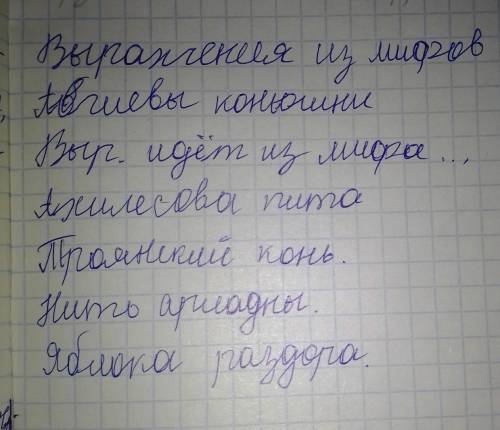 Выражения из мифов
Авгиевы конюшни
Выр. идёт из мифа...
Ахилесова пита
Троянский конь.
Нить ариадны.
Яблока раздора.